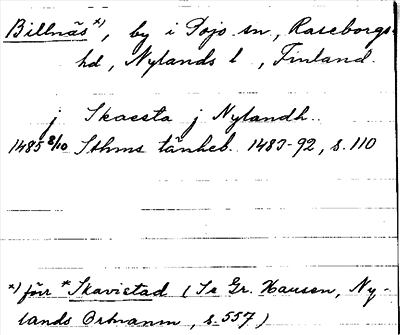 Billnäs *), by i Pojo sn, Raseborgs
hd, Nylands l, Finland.
j Skaesta j Nylandh..
1485 8/10 Sthms tänkeb. 1483-92, s. 110
*) förr *Skavistad (Se Gr. Hausen, Ny-
lands Ortnamn, s. 557)